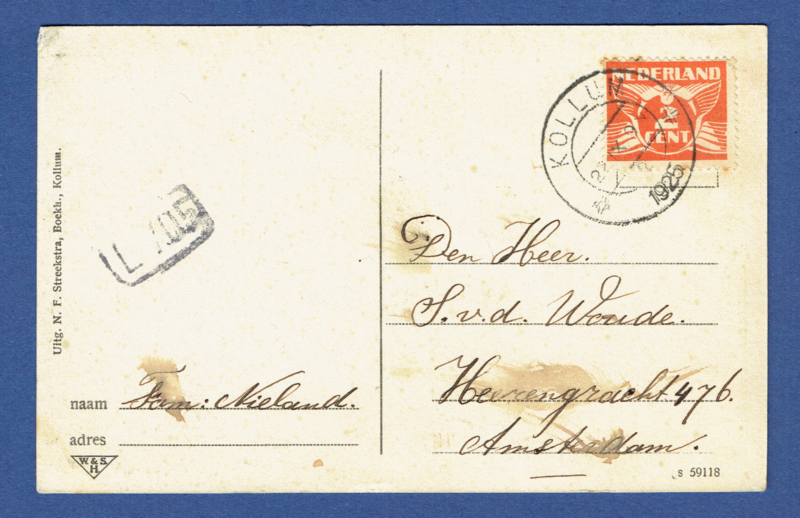 Uitg. N. F. Streekstra, Boekh., Kollum.
naam Fam: Nieland.
adres
W.&S.
H
NEDERLAND
2
CENT
KOLLUM
1925
Den Heer.
S. v. d. Woude.
Heerengracht 476.
Amsterdam.
s 59118